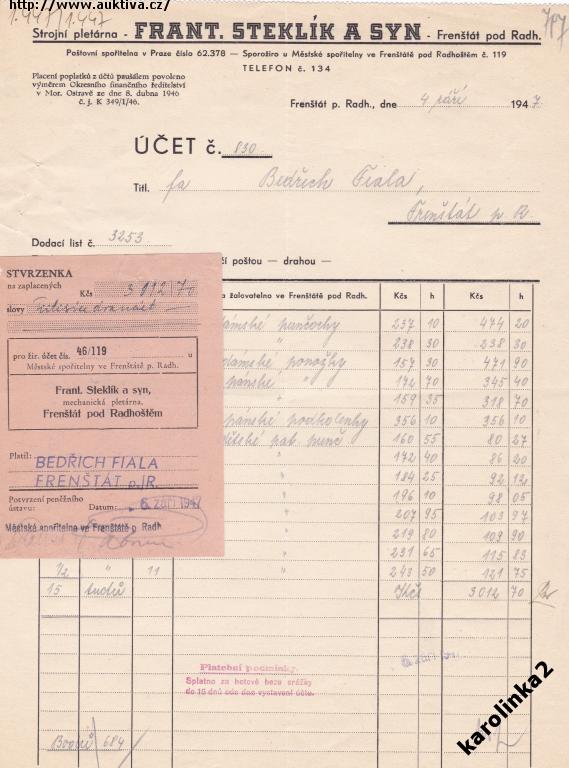 http://www.auktiva.cz/
1.447/1.447
Strojní pletárna - FRANT. STEKLÍK A SYN - Frenštát pod Radh.
Poštovní spořitelna v Praze číslo 62.378 — Sporožiro u Městské spořitelny ve Frenštátě pod Radhoštěm č. 119
TELEFON č. 134
Placení poplatků z účtů paušálem povoleno
výměrem Okresního finančního ředitelství
v Mor. Ostravě ze dne 8. dubna 1946
č. j. K 349/1/46.
Frenštát p. Radh., dne 4 září 1947
ÚČET č. 830
Titl. fa Bedřich Fiala,
Frenštát p. R
Dodací list č. 3253
poštou — drahou —
STVRZENKA
na zaplacených Kčs 3.012/70
slovy
pro žir. účet čís. 46/119 u
Městské spořitelny ve Frenštátě p. Radh.
Frant. Steklík a syn,
mechanická pletárna,
Frenštát pod Radhoštěm
Platil: BEDŘICH FIALA
FRENŠTÁT p./R.
Potvrzení peněžního
ústavu: Datum: 6. ZÁŘÍ 1947
Městská spořitelna ve Frenštátě p Radh
a žalovatelno ve Frenštátě pod Radh. Kčs h Kčs h
dámské punčochy 237 10 474 20
" 238 30 238 30
dámské ponožky 157 30 471 90
pánské " 172 70 345 40
" 159 35 318 70
pánské podkolenky 356 10 356 10
dětské pat. punč 160 55 80 27
" 172 40 86 20
" 184 25 92 12
" 196 10 98 05
" 207 95 103 97
" 219 80 109 90
" 231 65 115 83
1/2 " 11 " 243 50 121 75
15 tuctů Kčs 3012 70
Platební podmínky.
Splatno za hotové beze srážky
do 15 dnů ode dne vystavení účtu.
6. ZÁŘÍ 194
684
karolinka2